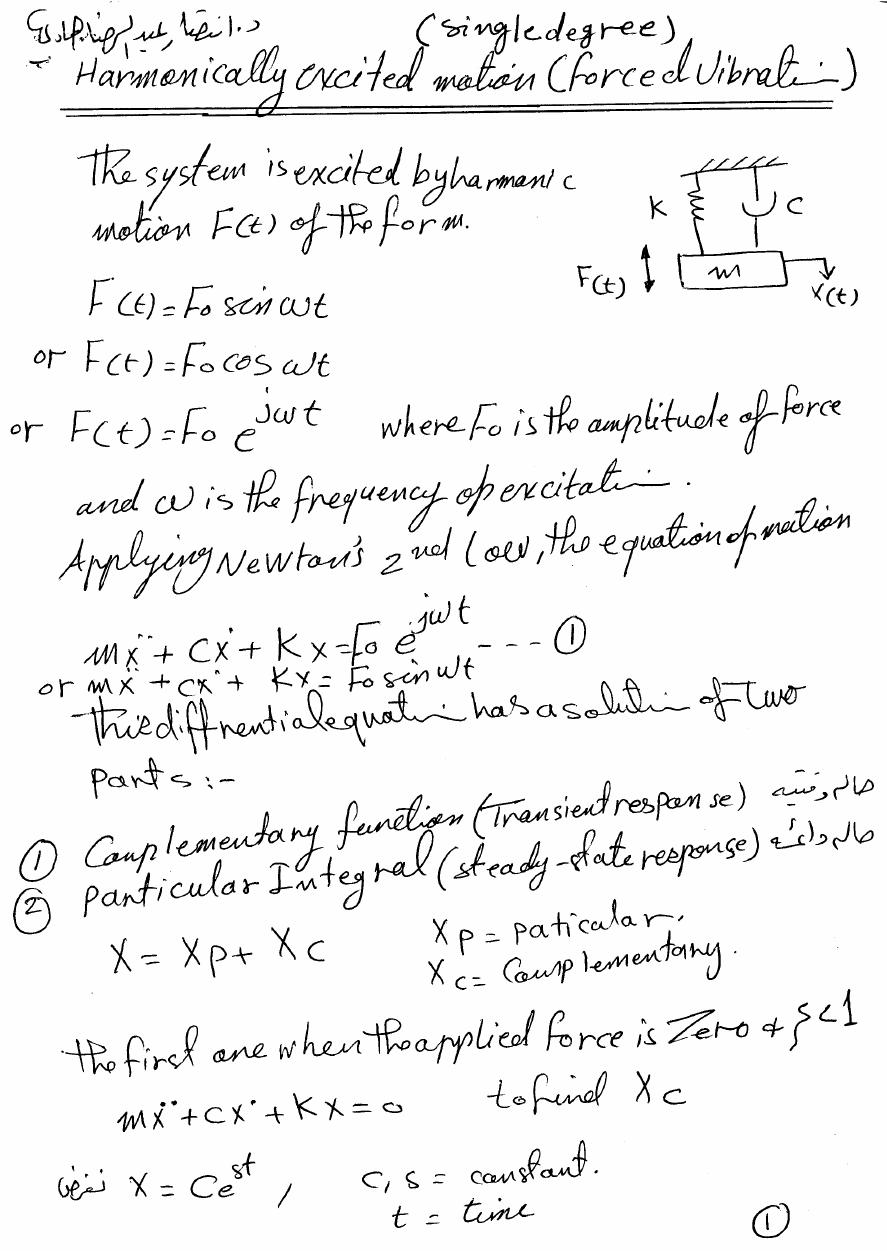 د. انتصار عبد الرضا
(single degree)
Harmonically excited motion (forced vibration)
The system is excited by harmonic
motion F(t) of the form.
K C
F(t) m
X(t)
F(t) = Fo sin ωt
or F(t) = Fo cos ωt
or F(t) = Fo e^jωt where Fo is the amplitude of force
and ω is the frequency of excitation.
Applying Newton's 2nd law, the equation of motion
mẍ + cẋ + Kx = Fo e^jωt - - - ①
or mẍ + cẋ + Kx = Fo sin ωt
this diffrential equation has a solution of Two
parts :-
① Complementary function (Transient response) حاله وقتيه
② Particular Integral (steady-state response) حاله دائمه
X = Xp + Xc
Xp = paticular.
Xc = Complementary.
the first one when the applied force is Zero & ξ<1
mẍ + cẋ + Kx = 0 to find Xc
نفرض X = Ce^st , C, s = constant.
t = time
①